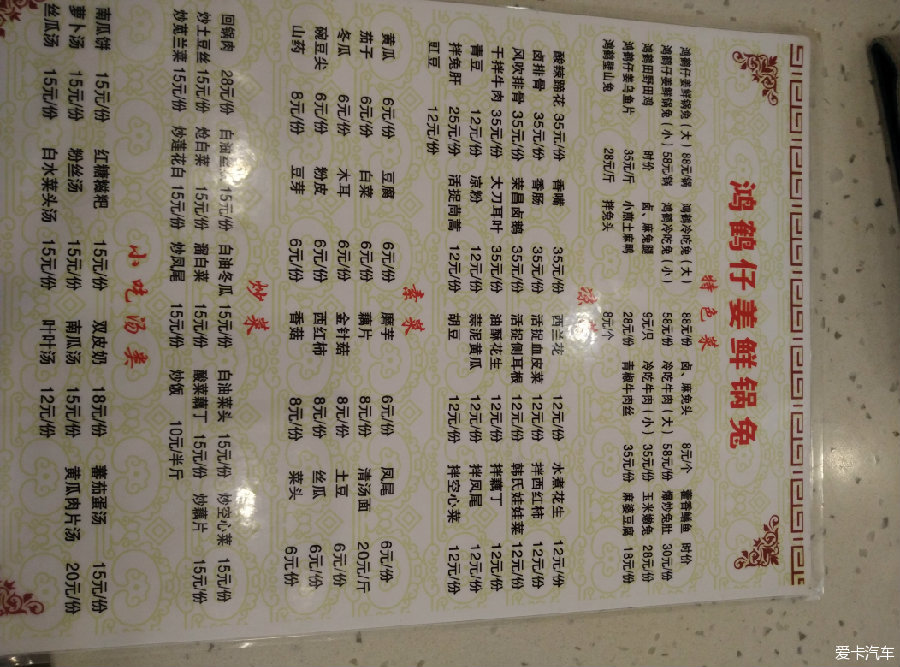 鸿鹤仔姜鲜锅兔
特色菜
鸿鹤仔姜鲜锅兔(大) 88元/锅 鸿鹤冷吃兔(大) 88元/份 卤、麻兔头 8元/个 藿香鲫鱼 时价
鸿鹤仔姜鲜锅兔(小) 58元/锅 鸿鹤冷吃兔(小) 58元/份 冷吃牛肉(大) 58元/份 爆炒兔肚 30元/份
鸿鹤田野田鸡 时价 卤、麻兔腿 9元/只 冷吃牛肉(小) 35元/份 玉米嫩兔 28元/份
鸿鹤仔姜乌鱼片 35元/斤 小煎土麻鸭 28元/份 青椒牛肉丝 35元/份 麻婆豆腐 18元/份
鸿鹤璧山兔 28元/斤 拌兔头 8元/个
凉菜
酸辣蹄花 35元/份 香嘴 35元/份 西兰花 12元/份 水煮花生 12元/份
卤排骨 35元/份 香肠 35元/份 活捉血皮菜 12元/份 拌西红柿 12元/份
风吹排骨 35元/份 荣昌卤鹅 35元/份 活捉侧耳根 12元/份 韩氏娃娃菜 12元/份
干拌牛肉 35元/份 大刀耳叶 35元/份 油酥花生 12元/份 拌藕丁 12元/份
青豆 12元/份 凉粉 12元/份 蒜泥黄瓜 12元/份 拌凤尾 12元/份
拌兔肝 25元/份 活捉茼蒿 12元/份 胡豆 12元/份 拌空心菜 12元/份
豇豆 12元/份
素菜
黄瓜 6元/份 豆腐 6元/份 魔芋 6元/份 凤尾 6元/份
茄子 6元/份 白菜 6元/份 藕片 8元/份 清汤面 20元/斤
冬瓜 6元/份 木耳 6元/份 金针菇 8元/份 土豆 6元/份
碗豆尖 6元/份 粉皮 6元/份 西红柿 8元/份 丝瓜 6元/份
山药 8元/份 豆芽 6元/份 香菇 8元/份 菜头 6元/份
炒菜
回锅肉 28元/份 白油 15元/份 白油冬瓜 15元/份 白油菜头 15元/份 炒空心菜 15元/份
炒土豆丝 15元/份 炝白菜 15元/份 溜白菜 15元/份 酸菜藕丁 15元/份 炒藕片 15元/份
炒苋兰菜 15元/份 炒莲花白 15元/份 炒凤尾 15元/份 炒饭 10元/半斤
小吃汤类
南瓜饼 15元/份 红糖糍粑 15元/份 双皮奶 18元/份 蕃茄蛋汤 15元/份
萝卜汤 15元/份 粉丝汤 15元/份 南瓜汤 15元/份 黄瓜肉片汤 20元/份
丝瓜汤 15元/份 白水菜头汤 15元/份 叶叶汤 12元/份
爱卡汽车